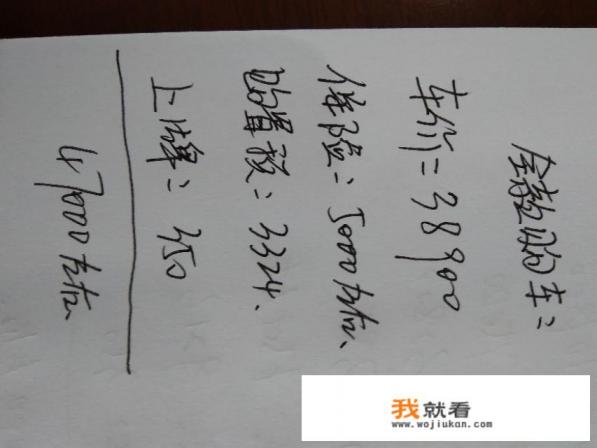 全款购车：
车价=38900
保险：5000左右、
购置税：3324、
上牌：350
47000左右、
我就看
www.wojiukan.com